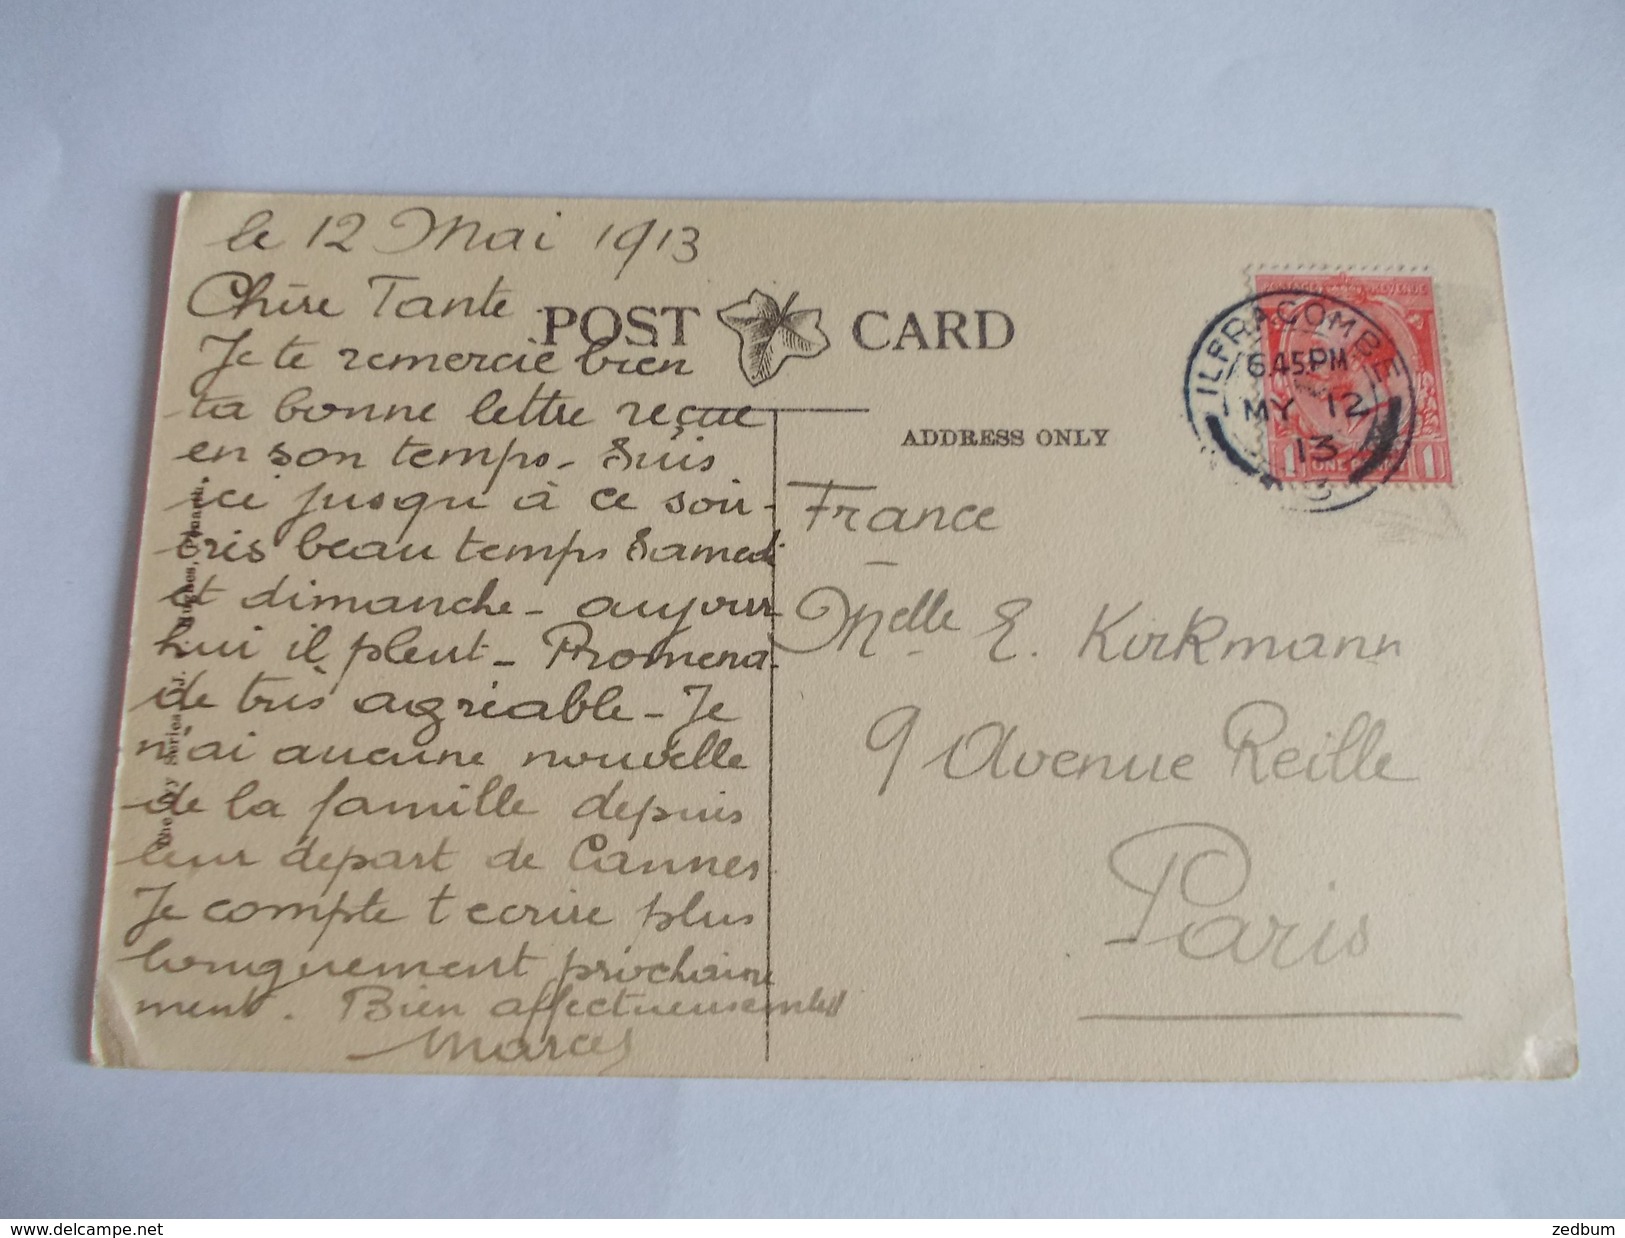 le 12 Mai 1913
Chère Tante
Je te remercie bien
ta bonne lettre reçue
en son temps - Suis
ici jusqu à ce soir -
très beau temps Samedi
et dimanche - aujour
hui il pleut - Promena-
de très agréable - Je
n'ai aucune nouvelle
de la famille depuis
leur départ de Cannes
Je compte t ecrire plus
longuement prochaine
ment. Bien affectueusement
Marcel
POST CARD
ADDRESS ONLY
ILFRACOMBE
6.45 PM
MY 12
13
1 ONE PENNY 1
France
Melle E. Kirkmann
9 Avenue Reille
Paris
delcampe.net
zedbum